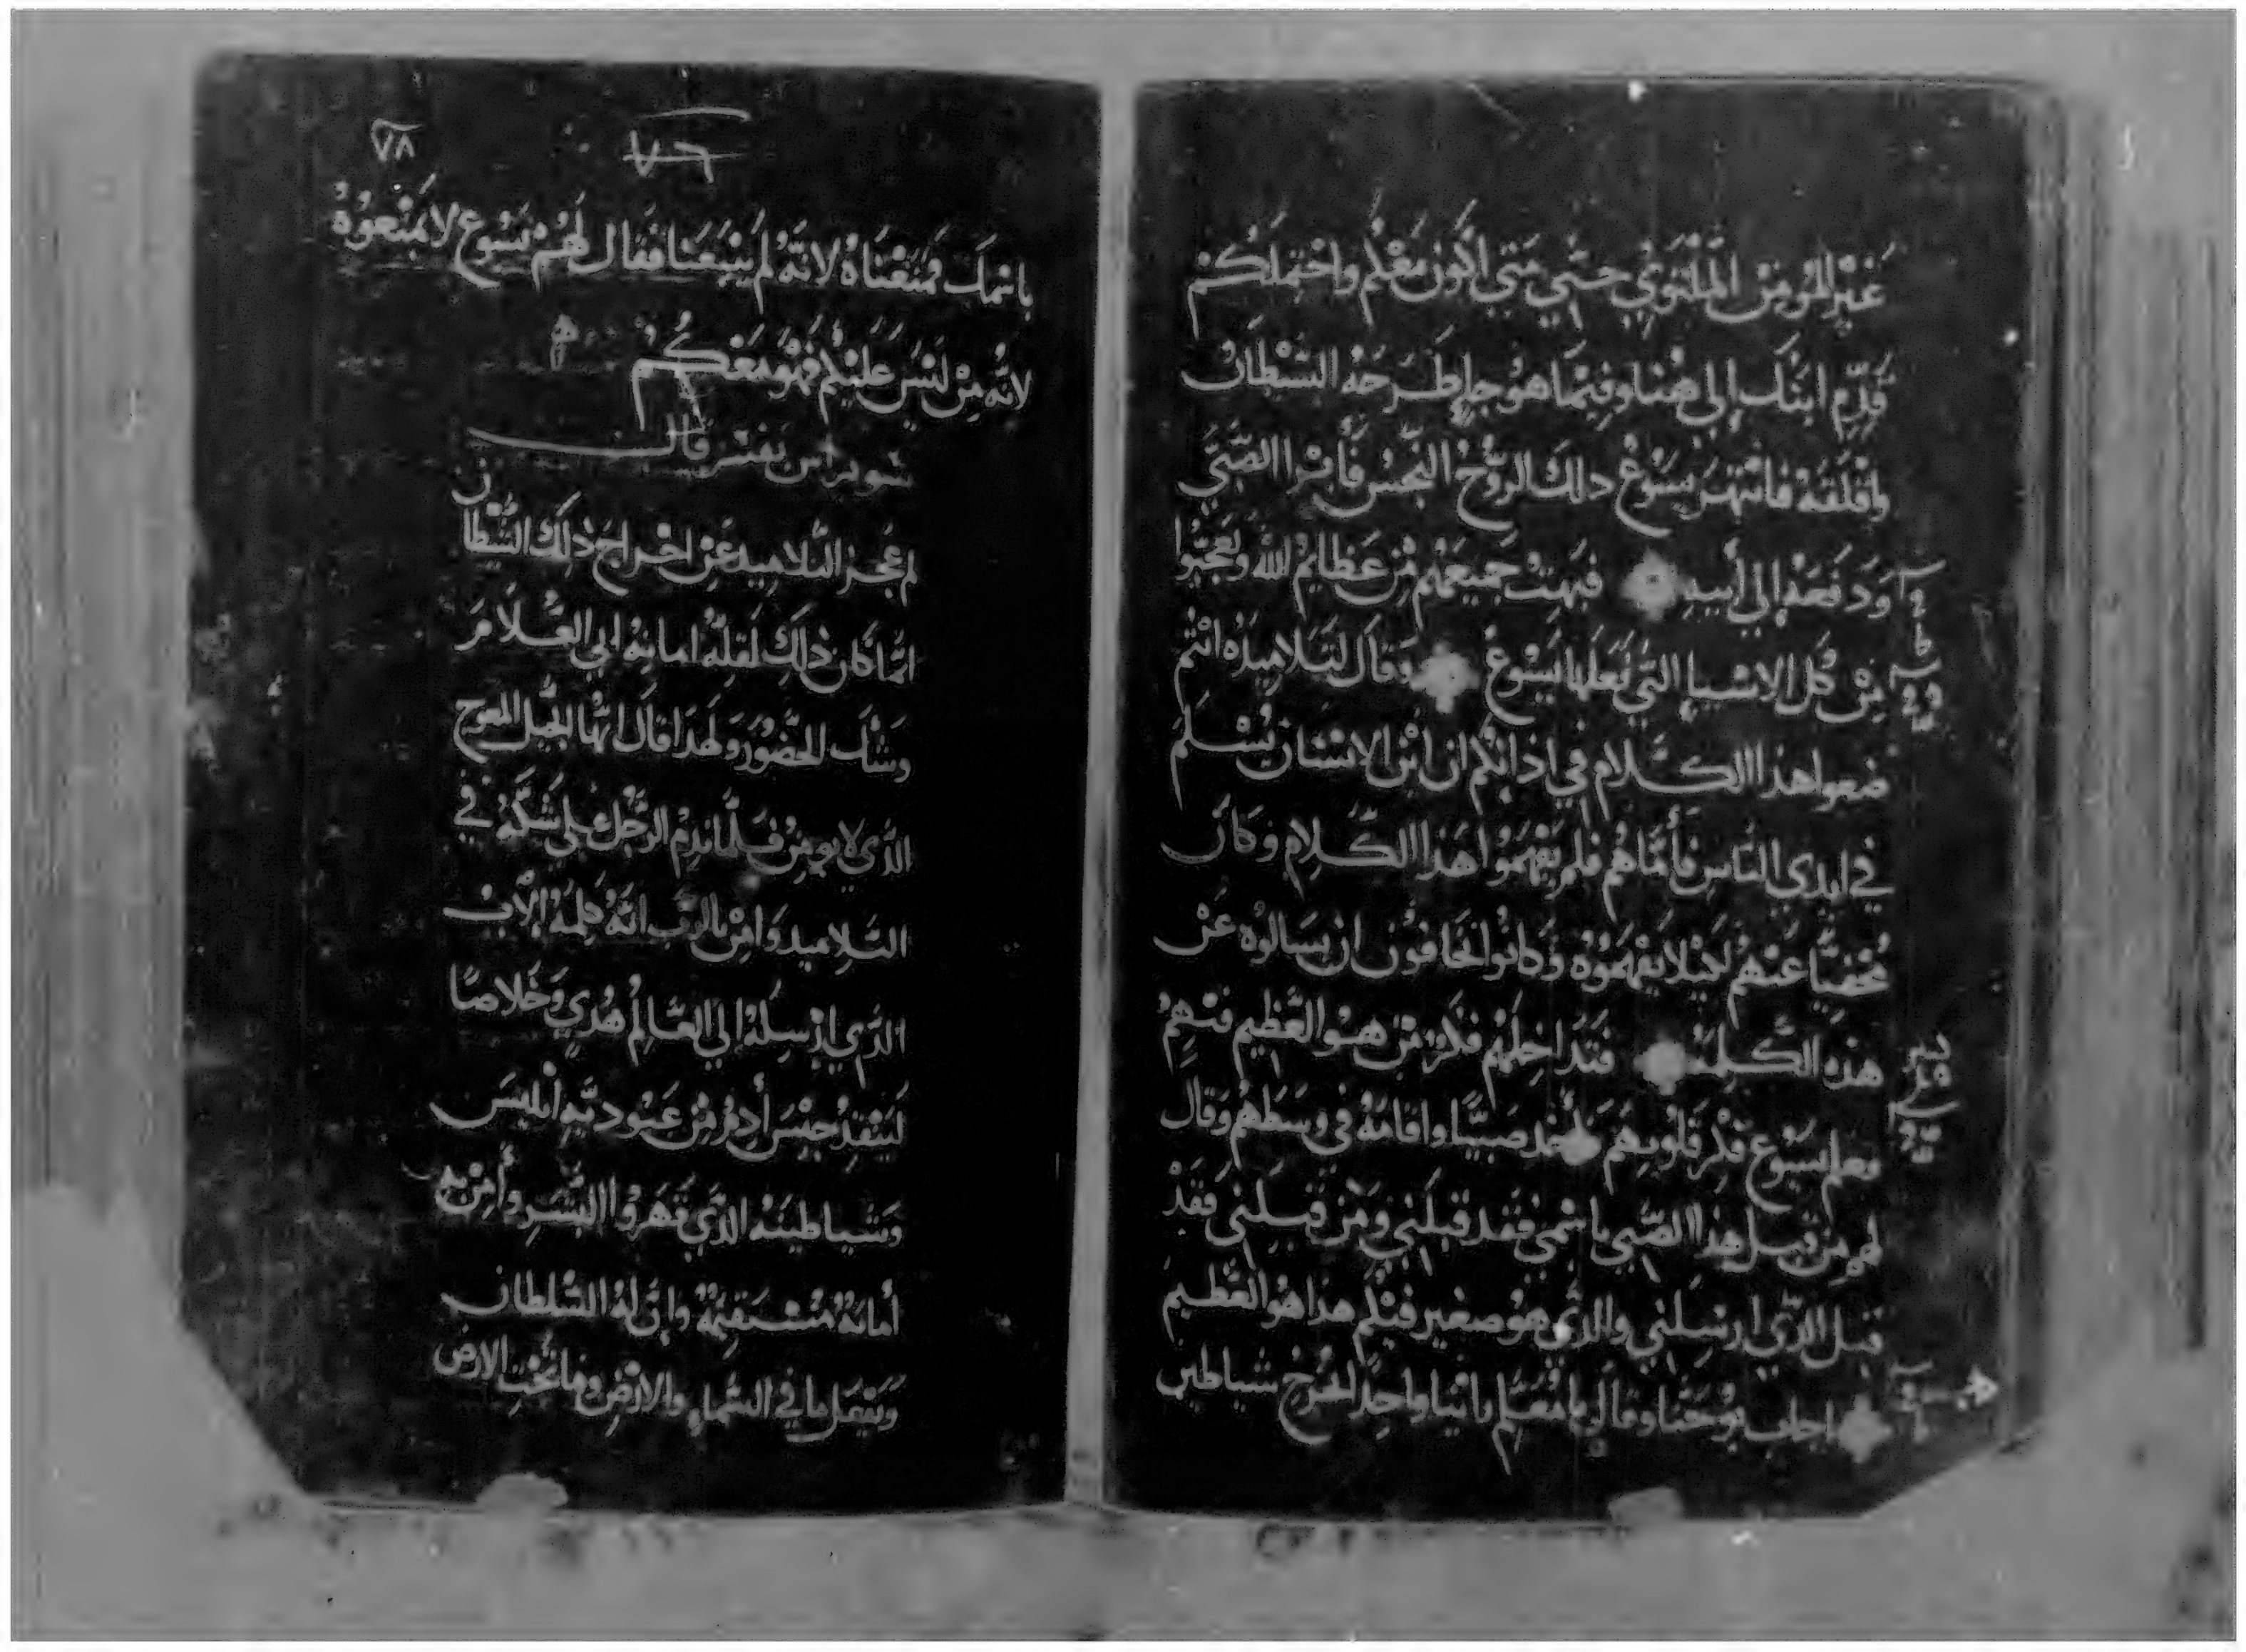 غير المومن الملتوي حتي متي اكون معكم واحتملكم
قدم ابنك الي هنا وفيما هو جا طرحه الشيطان
واقلقه فانتهر يسوع دلك الروح النجس فابرا الصبي
ودفعه الي أبيه فبهت جميعهم من عظايم الله وتعجبوا
من كل الاشيا التي فعلها يسوع وقال لتلاميده انتم
ضعوا هدا الكلام في ادانكم ان ابن الانسان يسلم
في ايدي الناس فأما هم فلم يفهموا هدا الكلام وكان
مخفيا عنهم لكيلا يفهموه وكانوا يخافون ان يسالوه عن
هده الكلمة فتداخلهم فكر من هو العظيم فيهم
فعلم يسوع فكر قلوبهم فاخد صبيا واقامه في وسطهم وقال
لهم من قبل هدا الصبي باسمي فقد قبلني ومن قبلني فقد
قبل الدي ارسلني والدي هو صغير فيكم هدا هو العظيم
اجاب يوحنا وقال يا معلم راينا واحدا يخرج شياطين
٧٨
٧٦
باسمك فمنعناه لانه لم يتبعنا فقال لهم يسوع لا تمنعوه
لانه من ليس عليكم فهو معكم
يفسر قال
لم عجز التلاميد عن اخراج دلك الشيطان
انما كان دلك لقلة امانة ابي الغلام
وشك الحضور ولهدا قال ايها الجيل المعوج
الدي لا يومن فلما ندم الرجل علي شكه في
التلاميد وامن بالرب انه كلمة الاب
الدي ارسله الي العالم هدي وخلاصا
لينقد جنس أدم من عبودية ابليس
وشياطينه الدي قهروا البشر وأمن به
أمانة مستقيمة وان له السلطان
ويفعل ما في السماء والارض وما تحت الارض